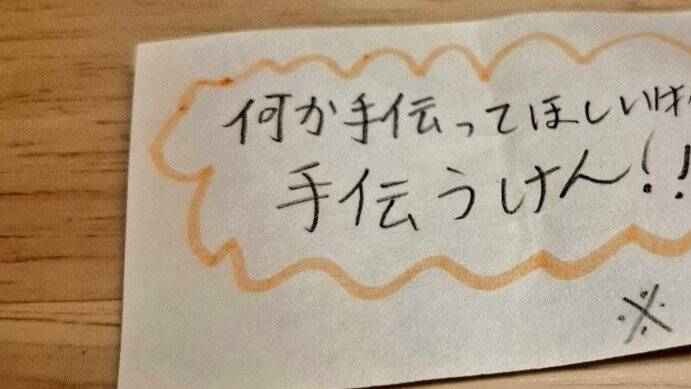 何か手伝ってほしい時
手伝うけん!!
※